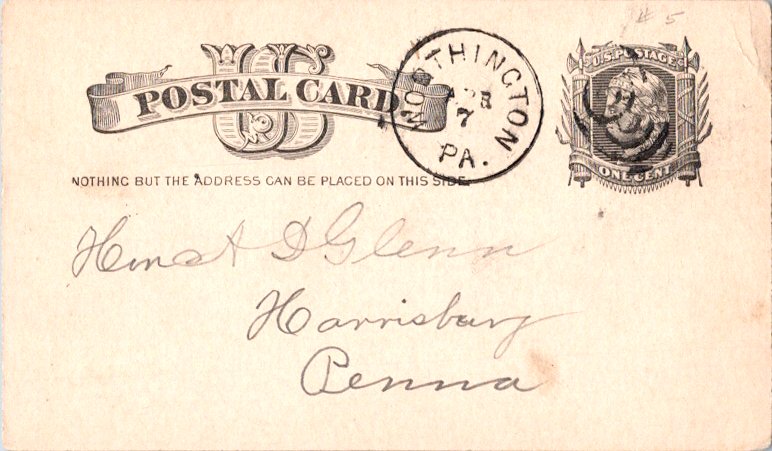 # 5
US
POSTAL CARD
WORTHINGTON
APR
7
PA.
U.S. POSTAGE
ONE CENT
NOTHING BUT THE ADDRESS CAN BE PLACED ON THIS SIDE.
Hon A D Glenn
Harrisburg
Penna